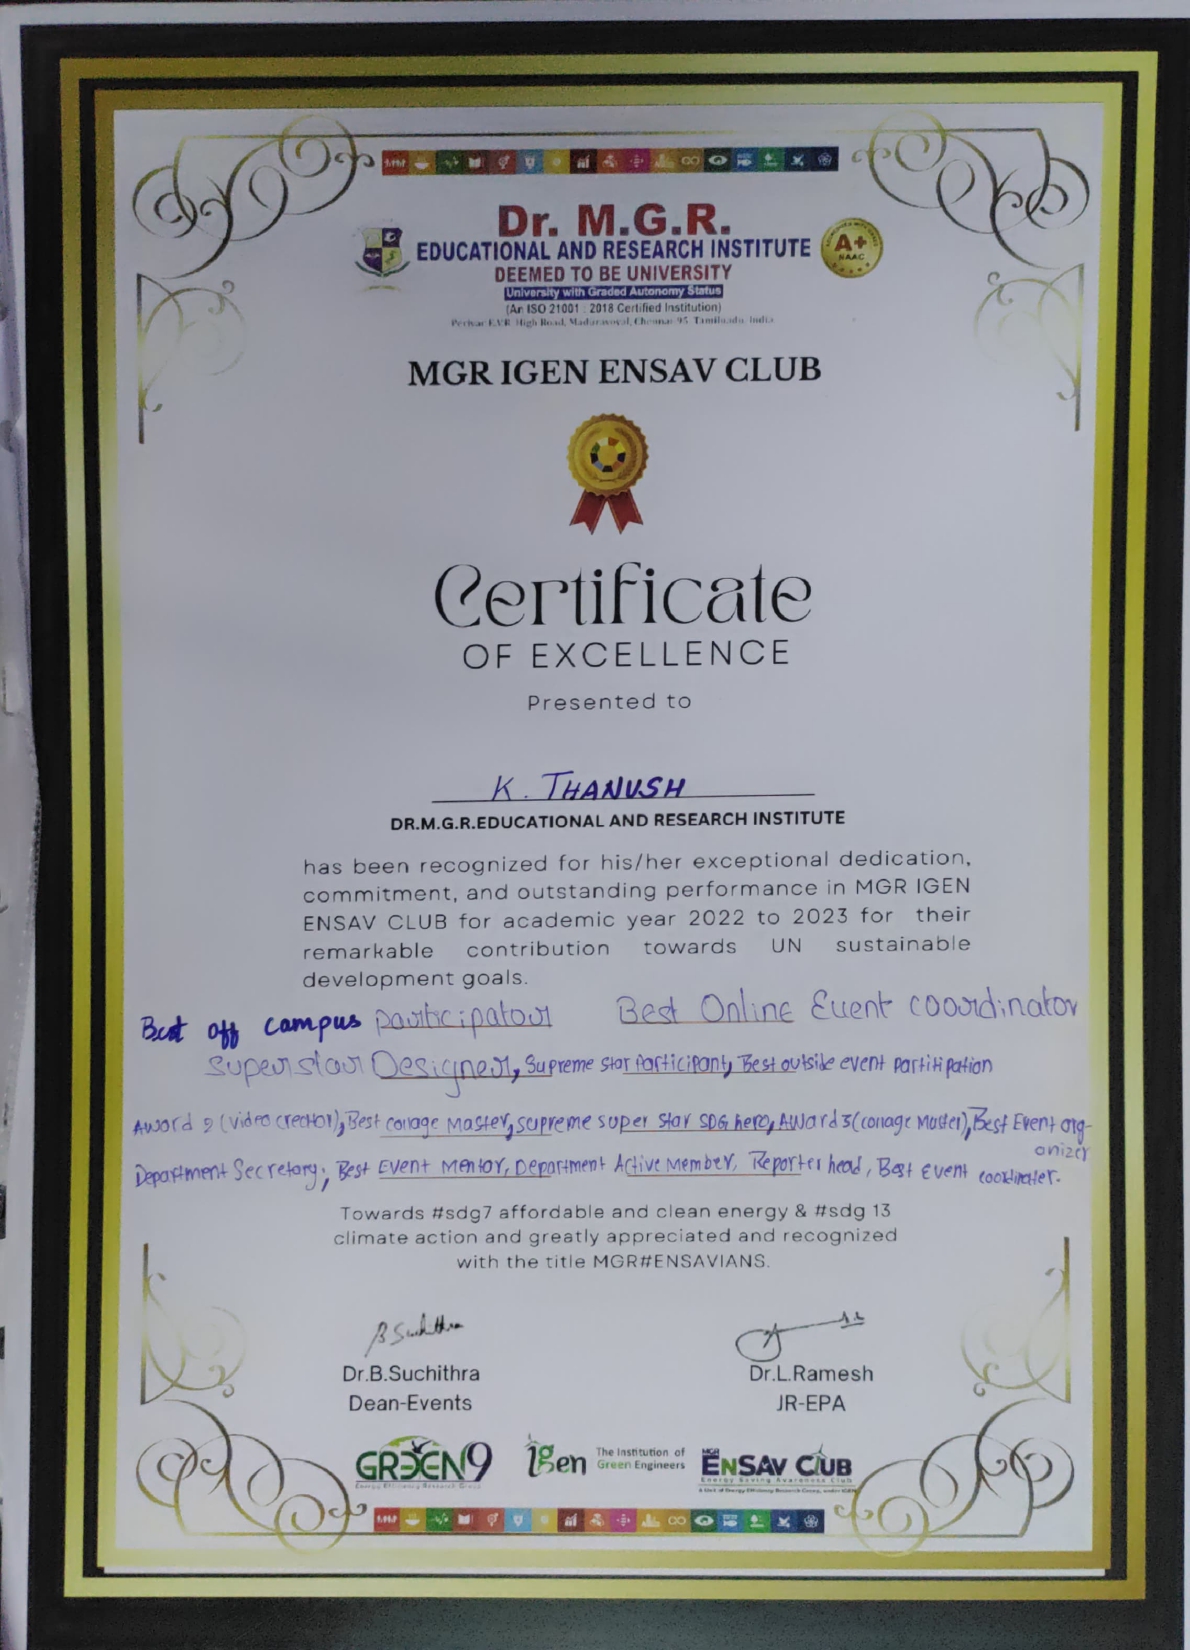 Dr. M.G.R.
EDUCATIONAL AND RESEARCH INSTITUTE
DEEMED TO BE UNIVERSITY
University with Graded Autonomy Status
(An ISO 21001 : 2018 Certified Institution)
Periyar E.V.R. High Road, Maduravoyal, Chennai-95. Tamilnadu, India
A+
NAAC
MGR IGEN ENSAV CLUB
Certificate
OF EXCELLENCE
Presented to
K. THANUSH
DR.M.G.R.EDUCATIONAL AND RESEARCH INSTITUTE
has been recognized for his/her exceptional dedication,
commitment, and outstanding performance in MGR IGEN
ENSAV CLUB for academic year 2022 to 2023 for their
remarkable contribution towards UN sustainable
development goals.
Best off campus participatour Best Online Event cooordinator
Superstar Designer, Supreme star Participant, Best outside event partitipation
Award 2 (video creator), Best collage Master, supreme super star SDG hero, AWard 3(collage Master), Best Event org-
onizer
Department Secretory, Best Event Mentor, Department Active Member, Reporter head, Best event coordinater.
Towards #sdg7 affordable and clean energy & #sdg 13
climate action and greatly appreciated and recognized
with the title MGR#ENSAVIANS.
B Suchithra
Dr.B.Suchithra
Dean-Events
Dr.L.Ramesh
JR-EPA
GREEN9
Energy Efficiency Research Group
igen The Institution of
Green Engineers
MGR
ENSAV CLUB
Energy Saving Awareness Club
A Unit of Energy Efficiency Research Group, under IGEN